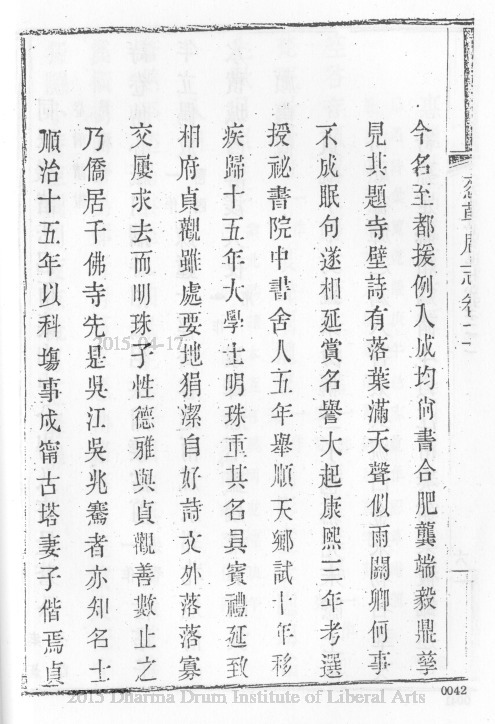 今名至都援例入成均尚書合肥龔端毅鼎孳
見其題寺壁詩有落葉滿天聲似雨關卿何事
不成眠句遂相延賞名譽大起康熙三年考選
授祕書院中書舍人五年舉順天鄉試十年移
疾歸十五年大學士明珠重其名具賓禮延致
相府貞觀雖處要地狷潔自好詩文外落落寡
交屢求去而明珠子性德雅與貞觀善數止之
乃僑居千佛寺先是吳江吳兆騫者亦知名士
順治十五年以科塲事戍甯古塔妻子偕焉貞
志卷十二
2015-04-17
0042
2015 Dharma Drum Institute of Liberal Arts